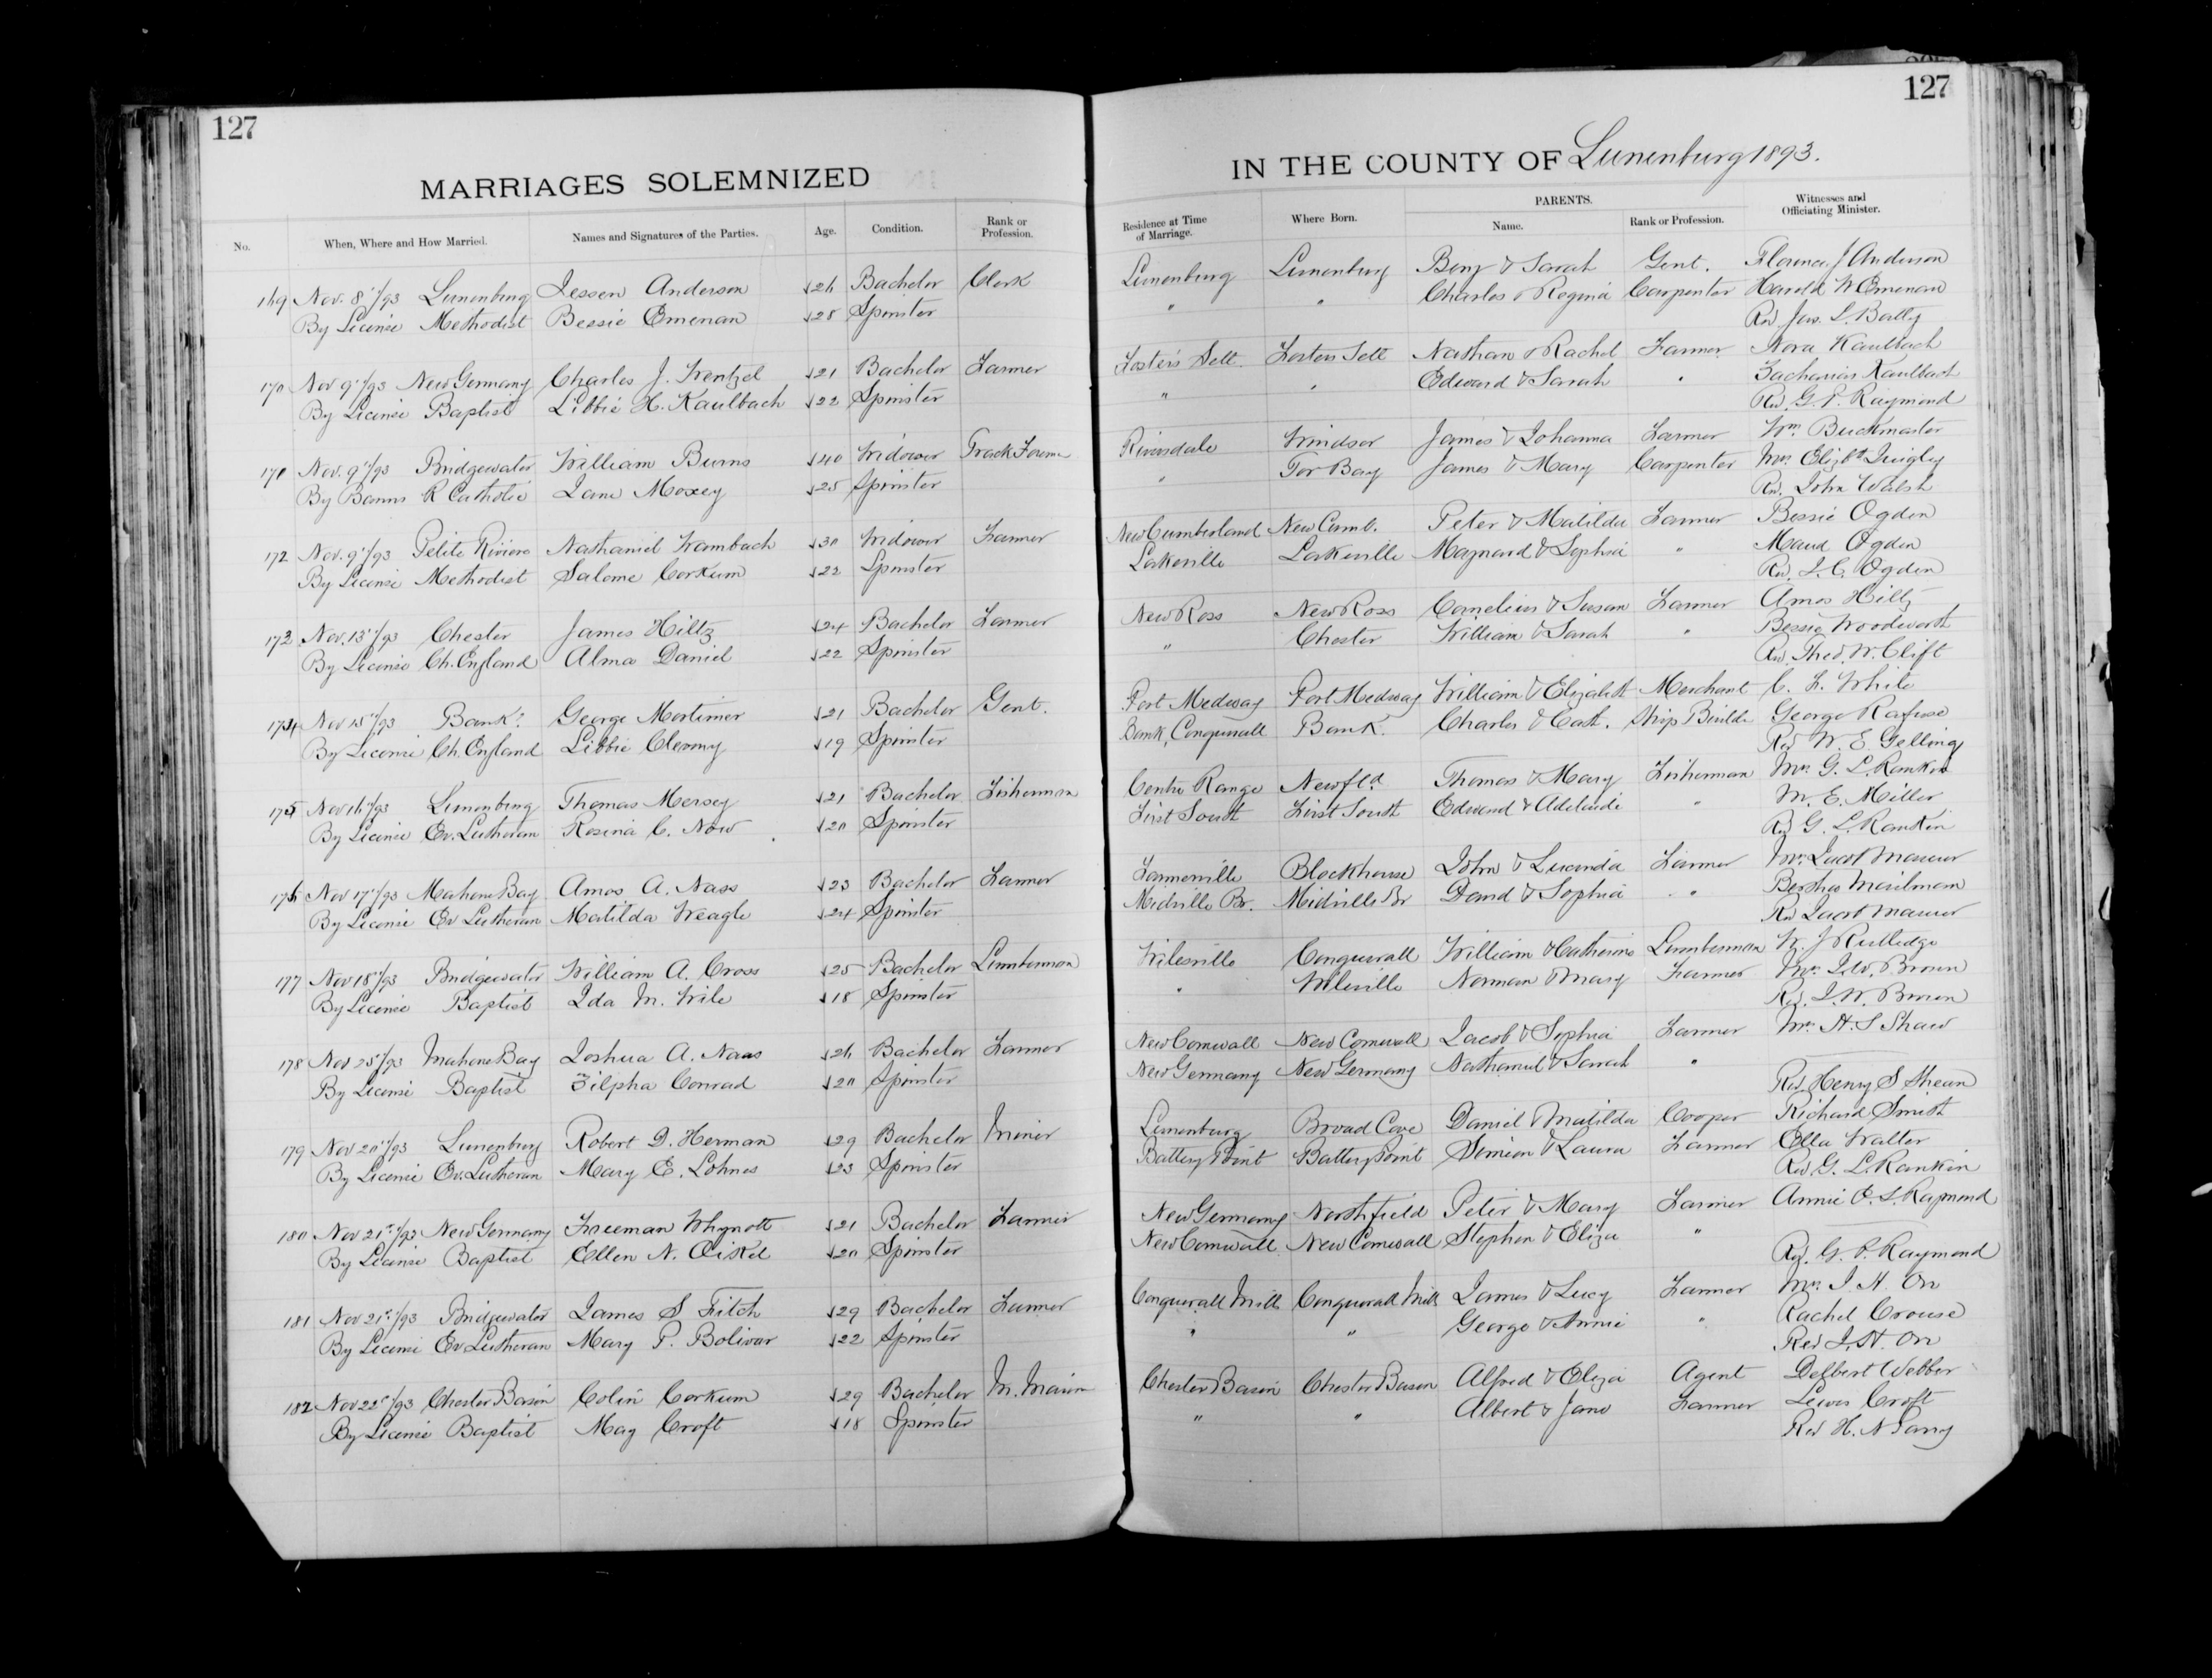 127
MARRIAGES SOLEMNIZED
No. When, Where and How Married. Names and Signatures of the Parties. Age. Condition. Rank or Profession.
169 Nov. 8"/93 Lunenburg Jessen Anderson 26 Bachelor Clerk
By License Methodist Bessie Emenau 28 Spinster
170 Nov 9"/93 New Germany Charles J. Wentzel 21 Bachelor Farmer
By License Baptist Libbie H. Kaulbach 22 Spinster
171 Nov. 9"/93 Bridgewater William Burns 40 Widower Track Foreman
By Banns R Catholic Jane Moxey 25 Spinster
172 Nov. 9"/93 Petite Riviere Nathaniel Wambach 30 Widower Farmer
By License Methodist Salome Corkum 22 Spinster
173 Nov. 13"/93 Chester James Hiltz 24 Bachelor Farmer
By License Ch. England Alma Daniel 22 Spinster
174 Nov 15"/93 Bank? George Mortimer 21 Bachelor Gent.
By License Ch. England Libbie 19 Spinster
175 Nov 16"/93 Lunenburg Thomas Mersey 21 Bachelor Fisherman
By License Ev. Lutheran Rosina C. Now 20 Spinster
176 Nov 17"/93 Mahone Bay Amos A. Nass 23 Bachelor Farmer
By License Ev Lutheran Matilda Weagle 24 Spinster
177 Nov 18"/93 Bridgewater William A. Cross 25 Bachelor Lumberman
By License Baptist Ida M. Wile 18 Spinster
178 Nov 25"/93 Mahone Bay Joshua A. Naas 26 Bachelor Farmer
By License Baptist Zilpha Conrad 20 Spinster
179 Nov 20"/93 Lunenburg Robert D. Herman 29 Bachelor Miner
By License Ev. Lutheran Mary E. Lohnes 23 Spinster
180 Nov 21st/93 New Germany Freeman Whynott 21 Bachelor Farmer
By License Baptist Ellen N. 20 Spinster
181 Nov 21st/93 Bridgewater James S Fitch 29 Bachelor Farmer
By License Ev Lutheran Mary P. Bolivar 22 Spinster
182 Nov 22d/93 Chester Basin Colin Corkum 29 Bachelor M. Marin
By License Baptist May Croft 18 Spinster
127
IN THE COUNTY OF Lunenburg 1893.
Residence at Time of Marriage. Where Born. PARENTS. Name. Rank or Profession. Witnesses and Officiating Minister.
Lunenburg Lunenburg Benj & Sarah Gent. Florence J Anderson
" " Charles & Regina Carpenter Harold W Emenau
Rev. Jas. L. Batty
Foster's Sett. Fosters Sett Nathan & Rachel Farmer Nora Kaulbach
" " Edward & Sarah " Zacharias Kaulbach
Rev. G. P. Raymond
Riversdale Windsor James & Johanna Farmer Wm. Buckmaster
" Tor Bay James & Mary Carpenter Mrs. Elizbth Quigley
Rev. John Walsh
New Cumberland New Cumb. Peter & Matilda Farmer Bessie Ogden
Lakeville Lakeville Maynard & Sophia " Maud Ogden
Rev. J. C. Ogden
New Ross New Ross Cornelius & Susan Farmer Amos Hiltz
" Chester William & Sarah " Bessie Woodworth
Rev. Thed. W. Clift
Port Medway Port Medway William & Elizabeth Merchant C. F. White
Bank, Conquerall Bank. Charles & Cath. Ship Builder George Rafuse
Rev W. E. Gelling
Centre Range Newfld. Thomas & Mary Fisherman Mrs. G. L. Rankin
First South First South Edward & Adelaide " M. E. Miller
Rev G. L. Rankin
Farmville Blockhouse John & Lucinda Farmer Mrs. Jacob Maurer
Midville Br. Midville Br David & Sophia " Bertha Mailman
Rev Jacob Maurer
Wilesville Conquerall William & Catherine Lumberman W. J Rutledge
" Wileville Norman & Mary Farmer Mrs. J.W. Brown
Rev. J. W. Brown
New Cornwall New Cornwall Jacob & Sophia Farmer Mrs. H. S Shaw
New Germany New Germany Nathaniel & Sarah "
Rev. Henry S Shean
Lunenburg Broad Cove Daniel & Matilda Cooper Richard Smith
Battery Point Battery Point Simion & Laura Farmer Ella Walter
Rev. G. L. Rankin
New Germany Northfield Peter & Mary Farmer Annie E. S. Raymond
New Cornwall New Cornwall Stephen & Eliza "
Rev. G. P. Raymond
Conquerall Mills Conquerall Mills James & Lucy Farmer Mrs. J. H. Orr
" " George & Annie " Rachel Crouse
Rev J. H. Orr
Chester Basin Chester Basin Alfred & Eliza Agent Delbert Webber
" " Albert & Jane Farmer Lewis Croft
Rev H. N Parry